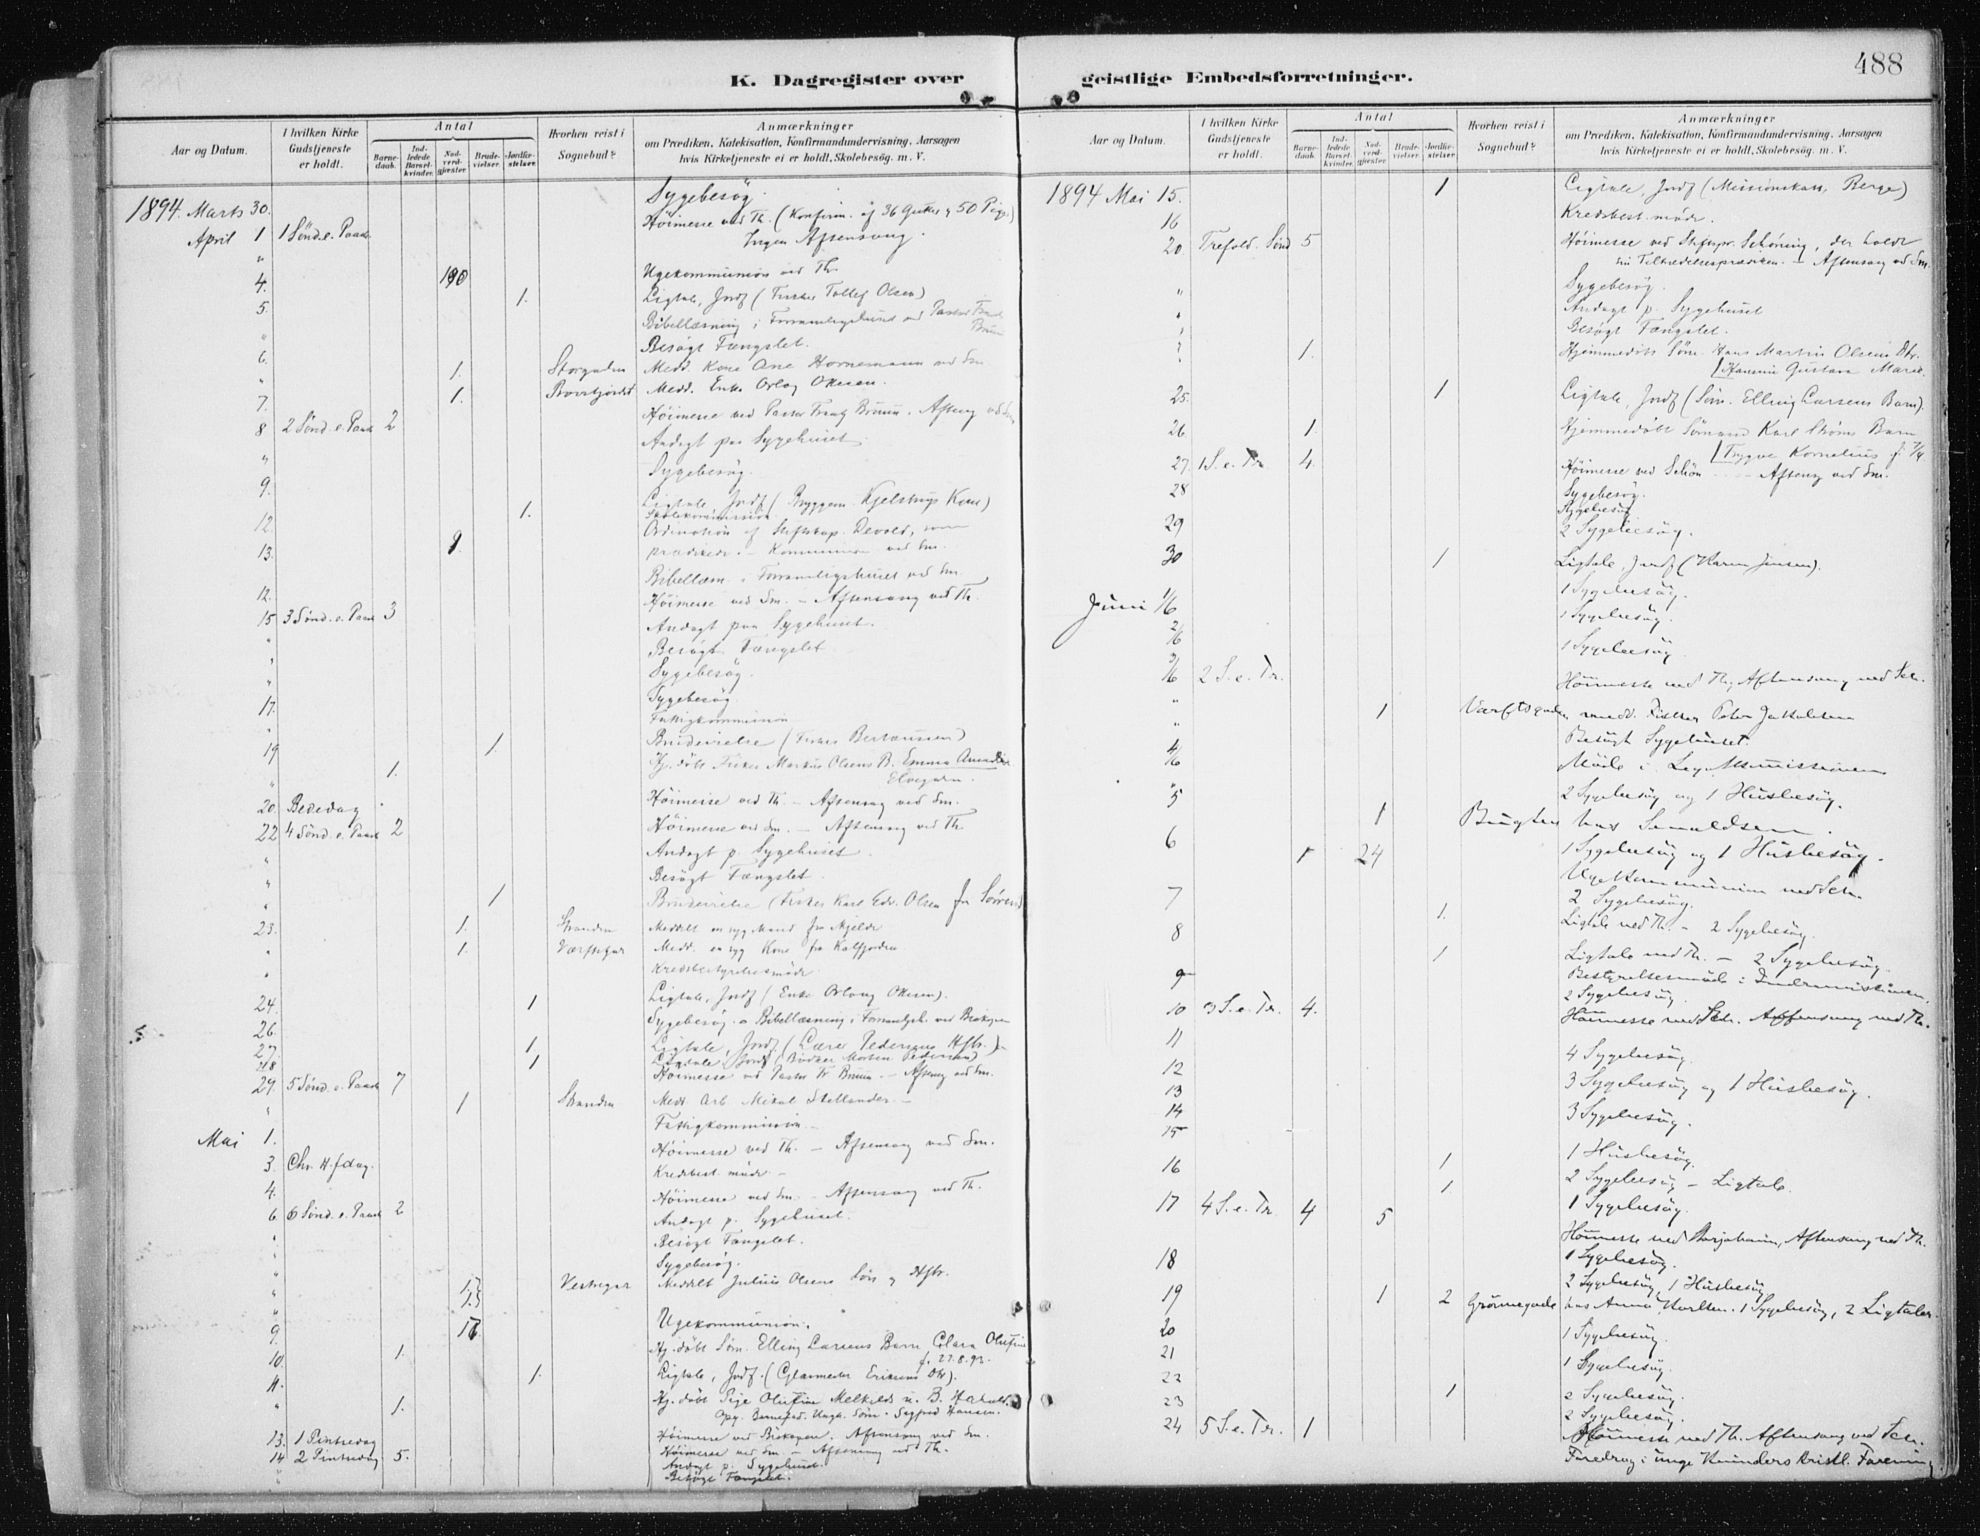 488
K. Dagregister over
Aar og Datum.
I hvilken Kirke Gudstjeneste er holdt.
Antal
Barnedaab.
Indledede Barselkvinder.
Nadverdgjæster
Brudevielser.
Jordfæstelser
Hvorhen reist i Sognebud?
Anmærkninger
om Prædiken, Katekisation, Konfirmandundervisning, Aarsagen
hvis Kirketjeneste ei er holdt, Skolebesøg. m. V.
1894. Marts 30. Sygebesøg.
April 1 1 Sønd. e. Paask. Höimesse ved Th. (Konfirm. af 36 Gutter og 50 Piger)
" Ingen Aftensang.
4. 190 Ugekommunion ved Th.
5. 1. Ligtale, Jordf (Fisker Tollef Olsen)
" Bibellæsning i Forsamlingshuset ved Pastor
Bruun
6. Besøgt Fængslet.
" 1. Storgaden Medd. Kone Ane Hornemann ved Sm
7. 1. Medd. Enke Orlog Olsen.
8 2 Sønd. e. Paask 2 Höimesse ved Pastor Bruun. Aftensg ved Sm
" Andagt paa Sygehuset.
9. Sygebesøg.
12. 1. Ligtale, Jordf (Kjelstrups Kone)
Skolekommission
13. 9. Ordination af Devold, som
prædikede. – Kommunion ved Sm.
12. Bibellæsn. i Forsamlingshuset ved Sm.
15 3 Sønd. e. Paask 3 Höimesse ved Sm. – Aftensang ved Th.
" Andagt paa Sygehuset.
" Besøgt Fængslet
" Sygebesøg.
17. Sygebesøg
" Fattigkommission
19 1. Brudevielse (Fisker Berteussen)
" 1. Hj. døbt Fisker Markus Olsens B. Emma
Elvegaden.
20. Bededag Höimesse ved Th. – Aftensag ved Sm.
22 4 Sønd. e. Paask 2 Höimesse ved Sm. – Aftensang ved Th
" Andagt p. Sygehuset.
" Besøgt Fængslet.
" 1 Brudevielse (Fisker Karl Edv. Olsen
23. 1. Stranden Meddelt en syg Mand
" 1. Medd. en syg Kone fra Kalfjorden
" Kredsbestyrelsesmøde
24. 1 Ligtale, Jordf (Enke Orloug Olsen).
26. Sygebesøg. o Bibellæsning i ved Biskopen
27. 1 Ligtale, Jordf (Lærer Pedersens Hstr.)
28 1 Ligtale, Jordf (Bødker Morten Pedersen)
29. 5 Sønd. e. Paask 7 Höimesse ved Pastor Fr Bruun – Aftensg ved Sm.
" 1 Stranden Medd Arb. Mikal Stellander –
Mai 1. Fattigkommission –
3. Chr. H. fdag. Höimesse ved Th. – Aftensang ved Sm.
4. Kredsbest. møde –
6. 6 Sønd. e. Paask 2 Höimesse ved Sm. – Aftensang ved Th.
" Andagt p. Sygehuset.
" Besøgt Fængslet.
" Sygebesøg.
" Meddelt Julius Olsens
9. Ugekommunion.
10. 1. Hj. døbt Søm. Elling Larsens Barn Clara Olufine
f. 27.8.93.
11. 1. Ligtale, Jordf. (Glarmester Eriksens Dtr).
" 1. Hj. døbt Pige Olufine
Ungk. Søm. Sigfred Hansen.
13. 1 Pintsedag Höimesse ved Biskopen. Aftensang ved Sm.
14 2 Pintsedag 5. Höimesse ved Sm – Aftensang ved Th.
" Andagt p. Sygehuset.
Besøgt Fængslet.
geistlige Embedsforretninger.
Aar og Datum.
I hvilken Kirke Gudstjeneste er holdt.
Antal
Barnedaab.
Indledede Barselkvinder.
Nadverdgjæster
Brudevielser.
Jordfæstelser
Hvorhen reist i Sognebud?
Anmærkninger
om Prædiken, Katekisation, Konfirmandundervisning, Aarsagen
hvis Kirketjeneste ei er holdt, Skolebesøg. m. V.
1894 Mai 15. 1 Ligtale, Jordf (Missionskass. Berge)
16 Kredsbest. møde.
20 Trefold. Sønd 5 Höimesse ved Stiftspr. Schöning, der holdt
sin Tiltrædelsesprædiken. – Aftensang ved Sm.
" Sygebesøg.
" Andagt p. Sygehuset
" Besøgt Fængslet.
" 1. Hjemmedöbt Søm. Hans Martin Olsens Dtr.
Gustava Marie.
25. 1 Ligtale, Jordf (Søm. Elling Larsens Barn).
26. 1. Hjemmedöbt Sømand Karl Strøms Barn
Trygve Kornelius f. 7/4.
27. 1 S. e. Tr 4. Höimesse ved Schön – Aftensg ved Sm.
28 Sygebesøg.
Sygebesøg
29 2 Sygebesøg.
30 1 Ligtale, Jordf (Karen Jensen).
Juni 1/6 1 Sygebesøg.
2/6 1 Sygebesøg.
3/6 2 S. e. Tr. 1 Sygebesøg
" Höimesse ved Th, Aftensang ved Sch.
" 1 Værftsgaden medd. Fisker Peter
4/6 Besøgt Sygehuset.
" Möde i
5 2 Sygebesøg og 1 Husbesøg.
6 1 Bugten hos
1 24 1 Sygebesøg og 1 Husbesøg.
7 Ugekommunion ved Sch.
2 Sygebesøg.
8 1. Ligtale ved Th. – 2 Sygebesøg.
9 1 Ligtale ved Th. – 2 Sygebesøg.
Bestyrelsesmöde i Indremissionen.
10 3 S. e. Tr. 4. 2 Sygebesøg.
11 Höimesse ved Sch. Aftensang ved Th.
12 4 Sygebesøg.
13 3 Sygebesøg og 1 Husbesøg.
14 3 Sygebesøg.
15 1 Husbesøg.
16 1 2 Sygebesøg – Ligtale.
17 4 S. e. Tr. 4 5 1 1 Sygebesøg.
Höimesse ved Aftensang ved Th.
18 1 Sygebesøg.
19 1 2 Grønnegade 2 Sygebesøg, 1 Husbesøg
hos Anna 1 Sygebesøg, 2 Ligtaler.
20 1 Sygebesøg.
21 1 Sygebesøg.
22
23 1 2 Sygebesøg.
2 Sygebesøg.
24 5 S. e. Tr. 1 Höimesse ved Th. Aftensang ved Sch.
Foredrag i unge Kvinders kristl. Forening